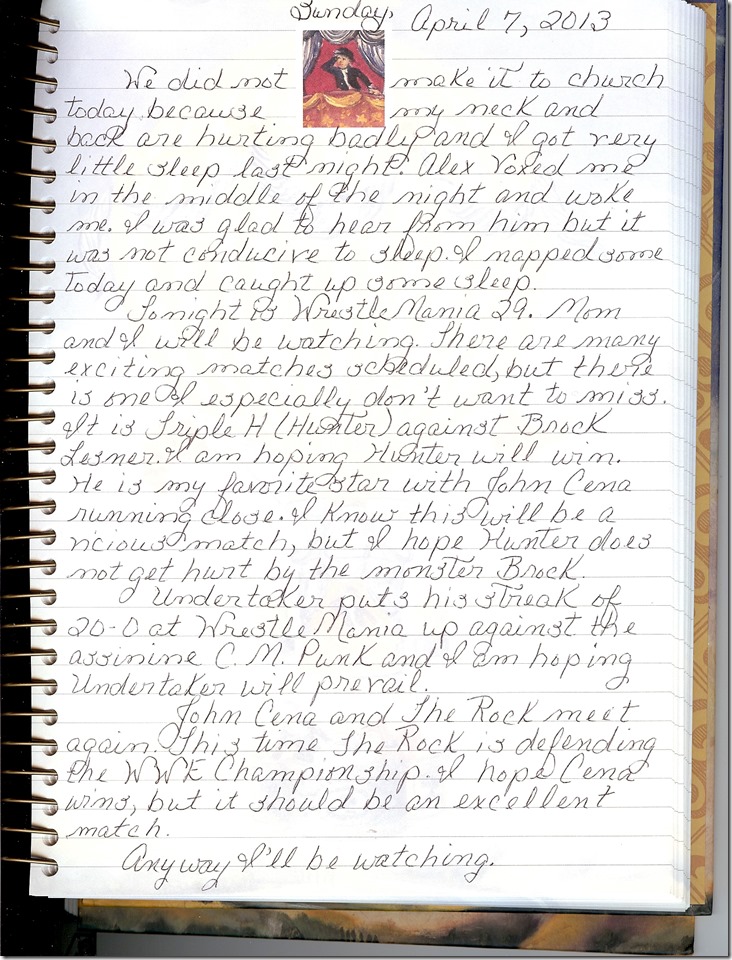 Sunday, April 7, 2013
We did not make it to church
today because my neck and
back are hurting badly and I got very
little sleep last night. Alex Voxed me
in the middle of the night and woke
me. I was glad to hear from him but it
was not conducive to sleep. I napped some
today and caught up some sleep.
Tonight is WrestleMania 29. Mom
and I will be watching. There are many
exciting matches scheduled, but there
is one I especially don't want to miss.
It is Triple H (Hunter) against Brock
Lesner. I am hoping Hunter will win.
He is my favorite star with John Cena
running close. I know this will be a
vicious match, but I hope Hunter does
not get hurt by the monster Brock.
Undertaker puts his streak of
20-0 at WrestleMania up against the
assinine C. M. Punk and I am hoping
Undertaker will prevail.
John Cena and The Rock meet
again. This time The Rock is defending
the WWE Championship. I hope Cena
wins, but it should be an excellent
match.
Anyway I'll be watching.